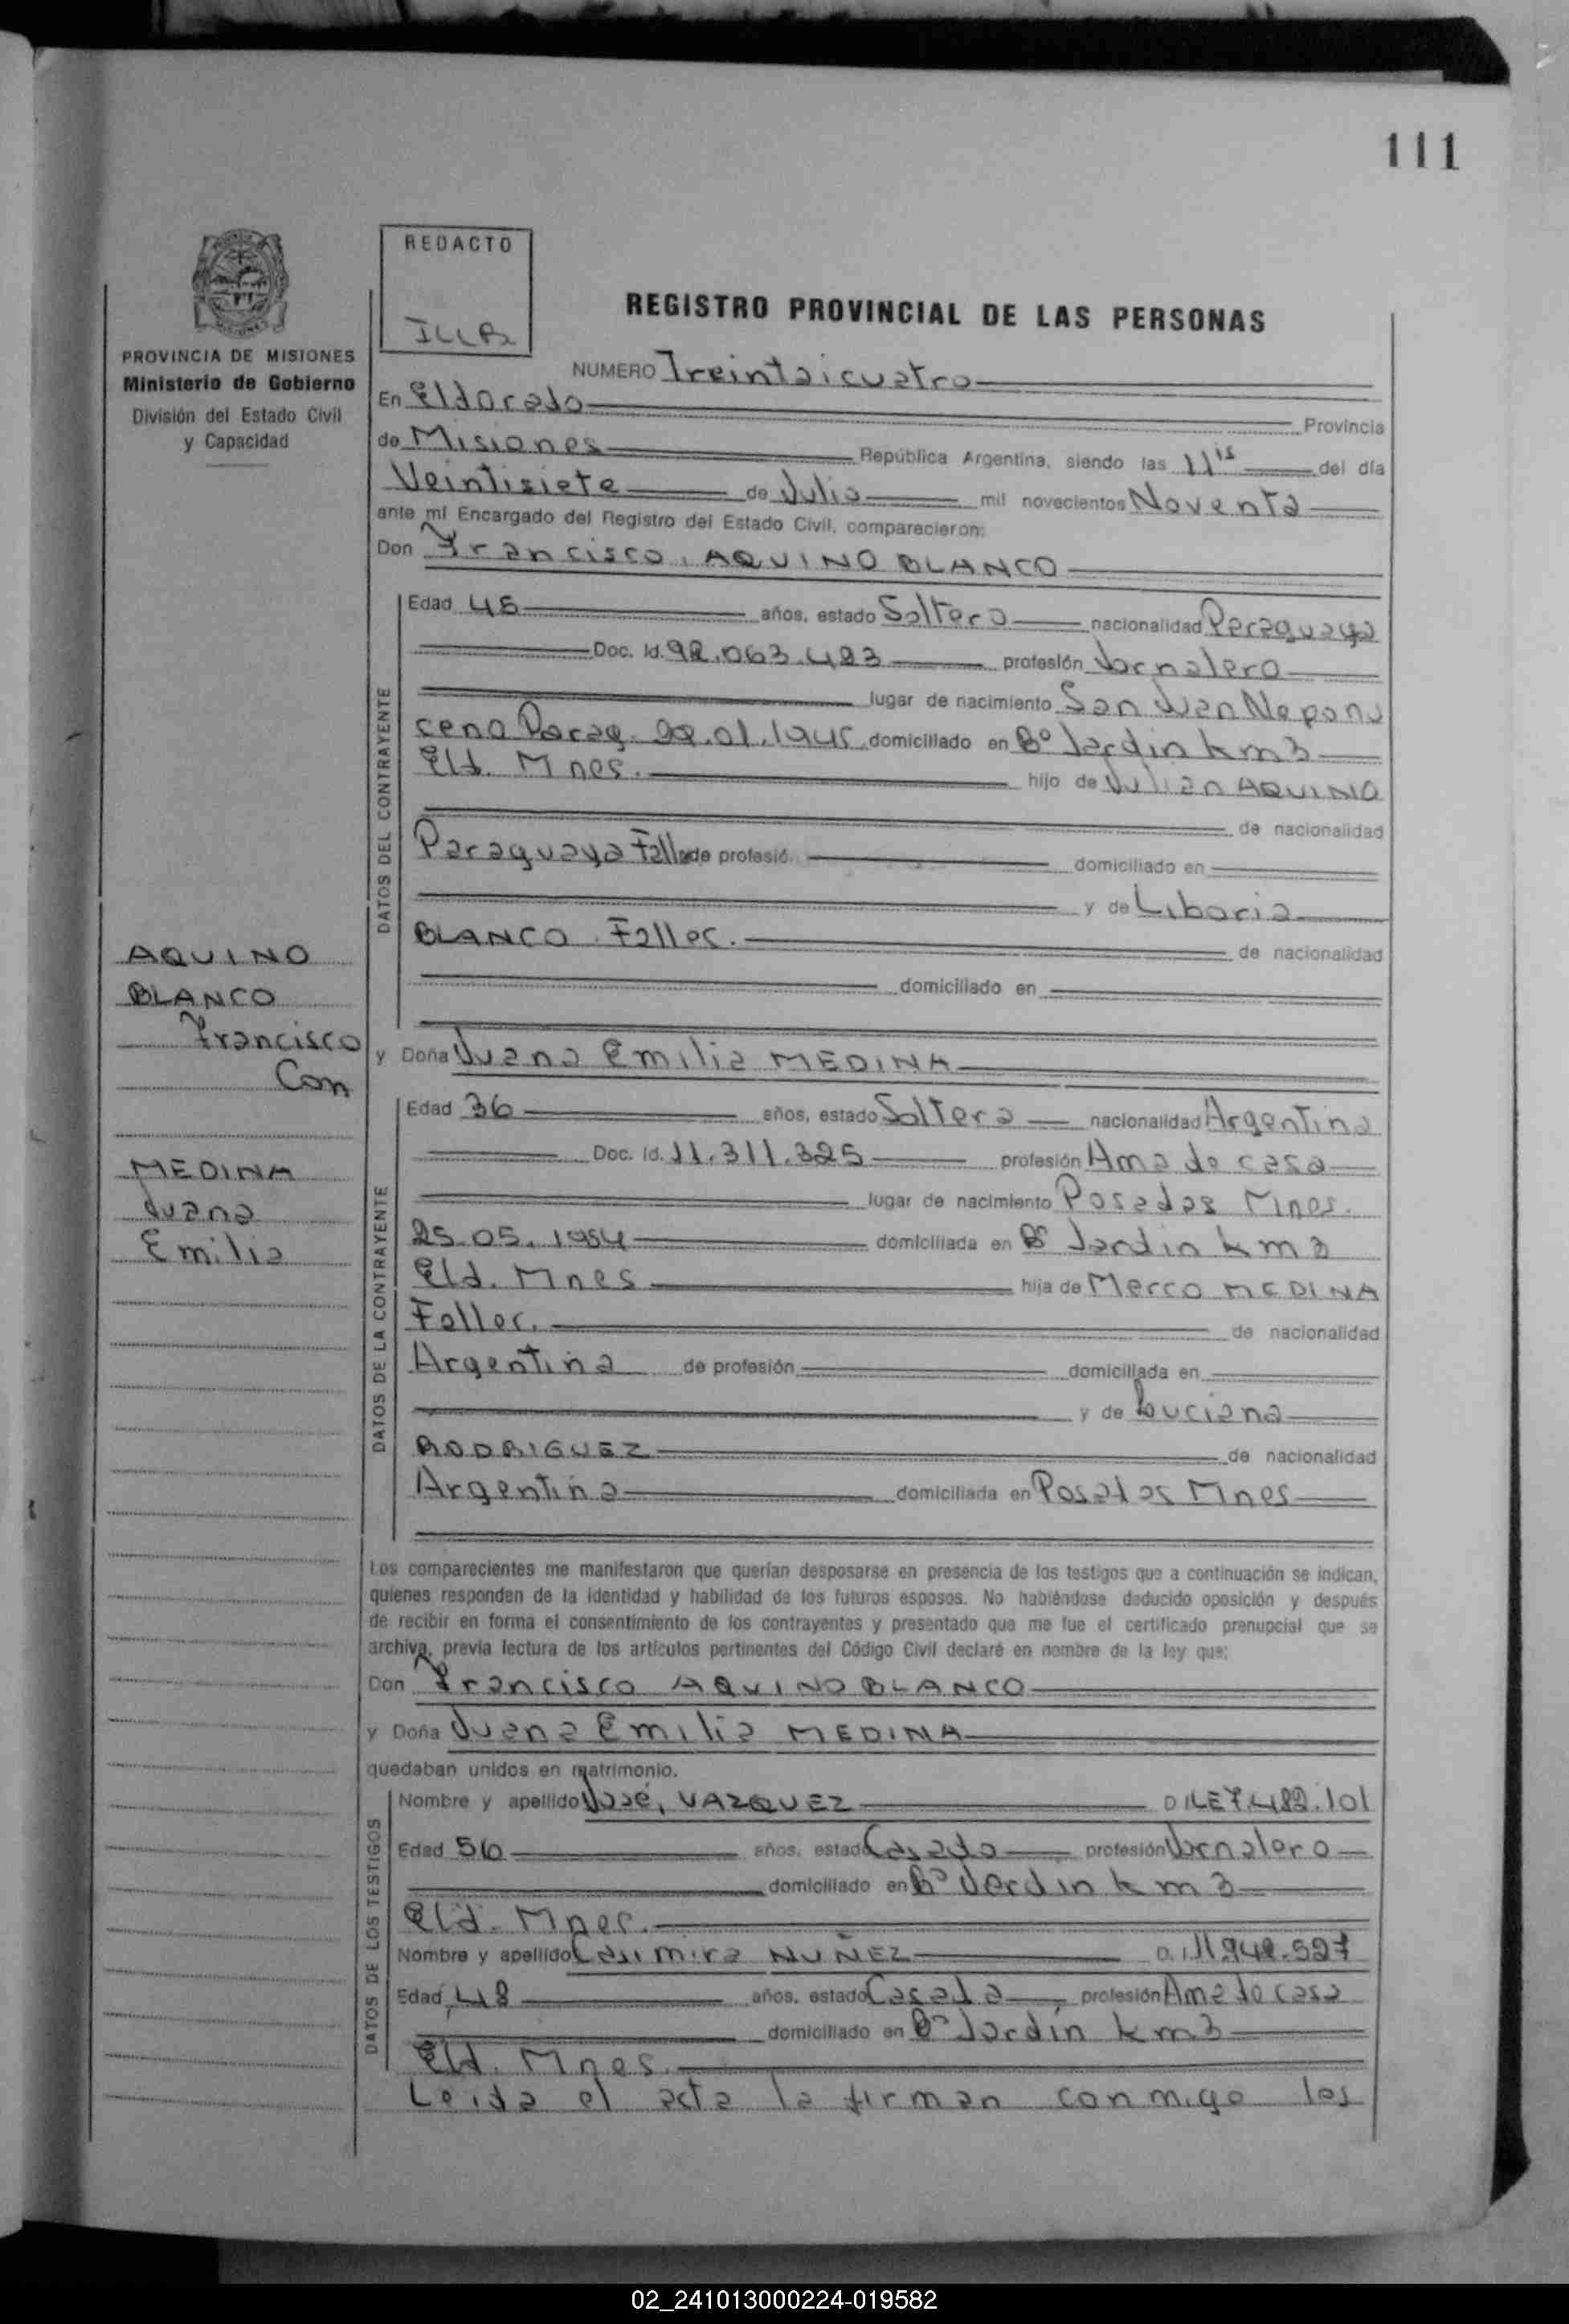 111
REDACTO
REGISTRO PROVINCIAL DE LAS PERSONAS
PROVINCIA DE MISIONES
Ministerio de Gobierno
División del Estado Civil
y Capacidad
NUMERO Treintaicuatro
En Eldorado Provincia
de Misiones República Argentina, siendo las 11 15 del día
Veintisiete de Julio mil novecientos Noventa
ante mí Encargado del Registro del Estado Civil, comparecieron:
Don Francisco, AQUINO BLANCO
Edad 45 años, estado Soltero nacionalidad Paraguaya
Doc. Id. 92.063.483 profesión Jornalero
lugar de nacimiento San Juan Neponu
ceno Parag. 29.01.1945 domiciliado en B° Jardin km 3
Eld. Mnes. hijo de Julian AQUINO
de nacionalidad
Paraguaya de profesió. domiciliado en
y de Liboria
BLANCO Fallec. de nacionalidad
domiciliado en
y Doña Juana Emilia MEDINA
Edad 36 años, estado Soltera nacionalidad Argentina
Doc. Id. 11.311.325 profesión Ama de casa
lugar de nacimiento Posadas Mnes.
25.05.1954 domiciliada en B° Jardin km 3
Eld. Mnes hija de Marco MEDINA
Fallec. de nacionalidad
Argentina de profesión domiciliada en
y de Luciana
RODRIGUEZ de nacionalidad
Argentina domiciliada en Posadas Mnes
Los comparecientes me manifestaron que querían desposarse en presencia de los testigos que a continuación se indican,
quienes responden de la identidad y habilidad de los futuros esposos. No habiéndose deducido oposición y después
de recibir en forma el consentimiento de los contrayentes y presentado que me fue el certificado prenupcial que se
archiva, previa lectura de los artículos pertinentes del Código Civil declaré en nombre de la ley que:
Don Francisco AQUINO BLANCO
y Doña Juana Emilia MEDINA
quedaban unidos en matrimonio.
Nombre y apellido José, VAZQUEZ D.I. LE 7.482.101
Edad 56 años, estado Casado profesión Jornalero
domiciliado en B° Jardin km 3
Eld. Mnes.
Nombre y apellido Casimira NUÑEZ D.I. 11.942.527
Edad 48 años, estado Casada profesión Ama de casa
domiciliado en B° Jardín km 3
Eld. Mnes.
Leida el acta la firman conmigo los
DATOS DEL CONTRAYENTE
DATOS DE LA CONTRAYENTE
DATOS DE LOS TESTIGOS
AQUINO
BLANCO
Francisco
Con
MEDINA
Juana
Emilia
02_241013000224-019582